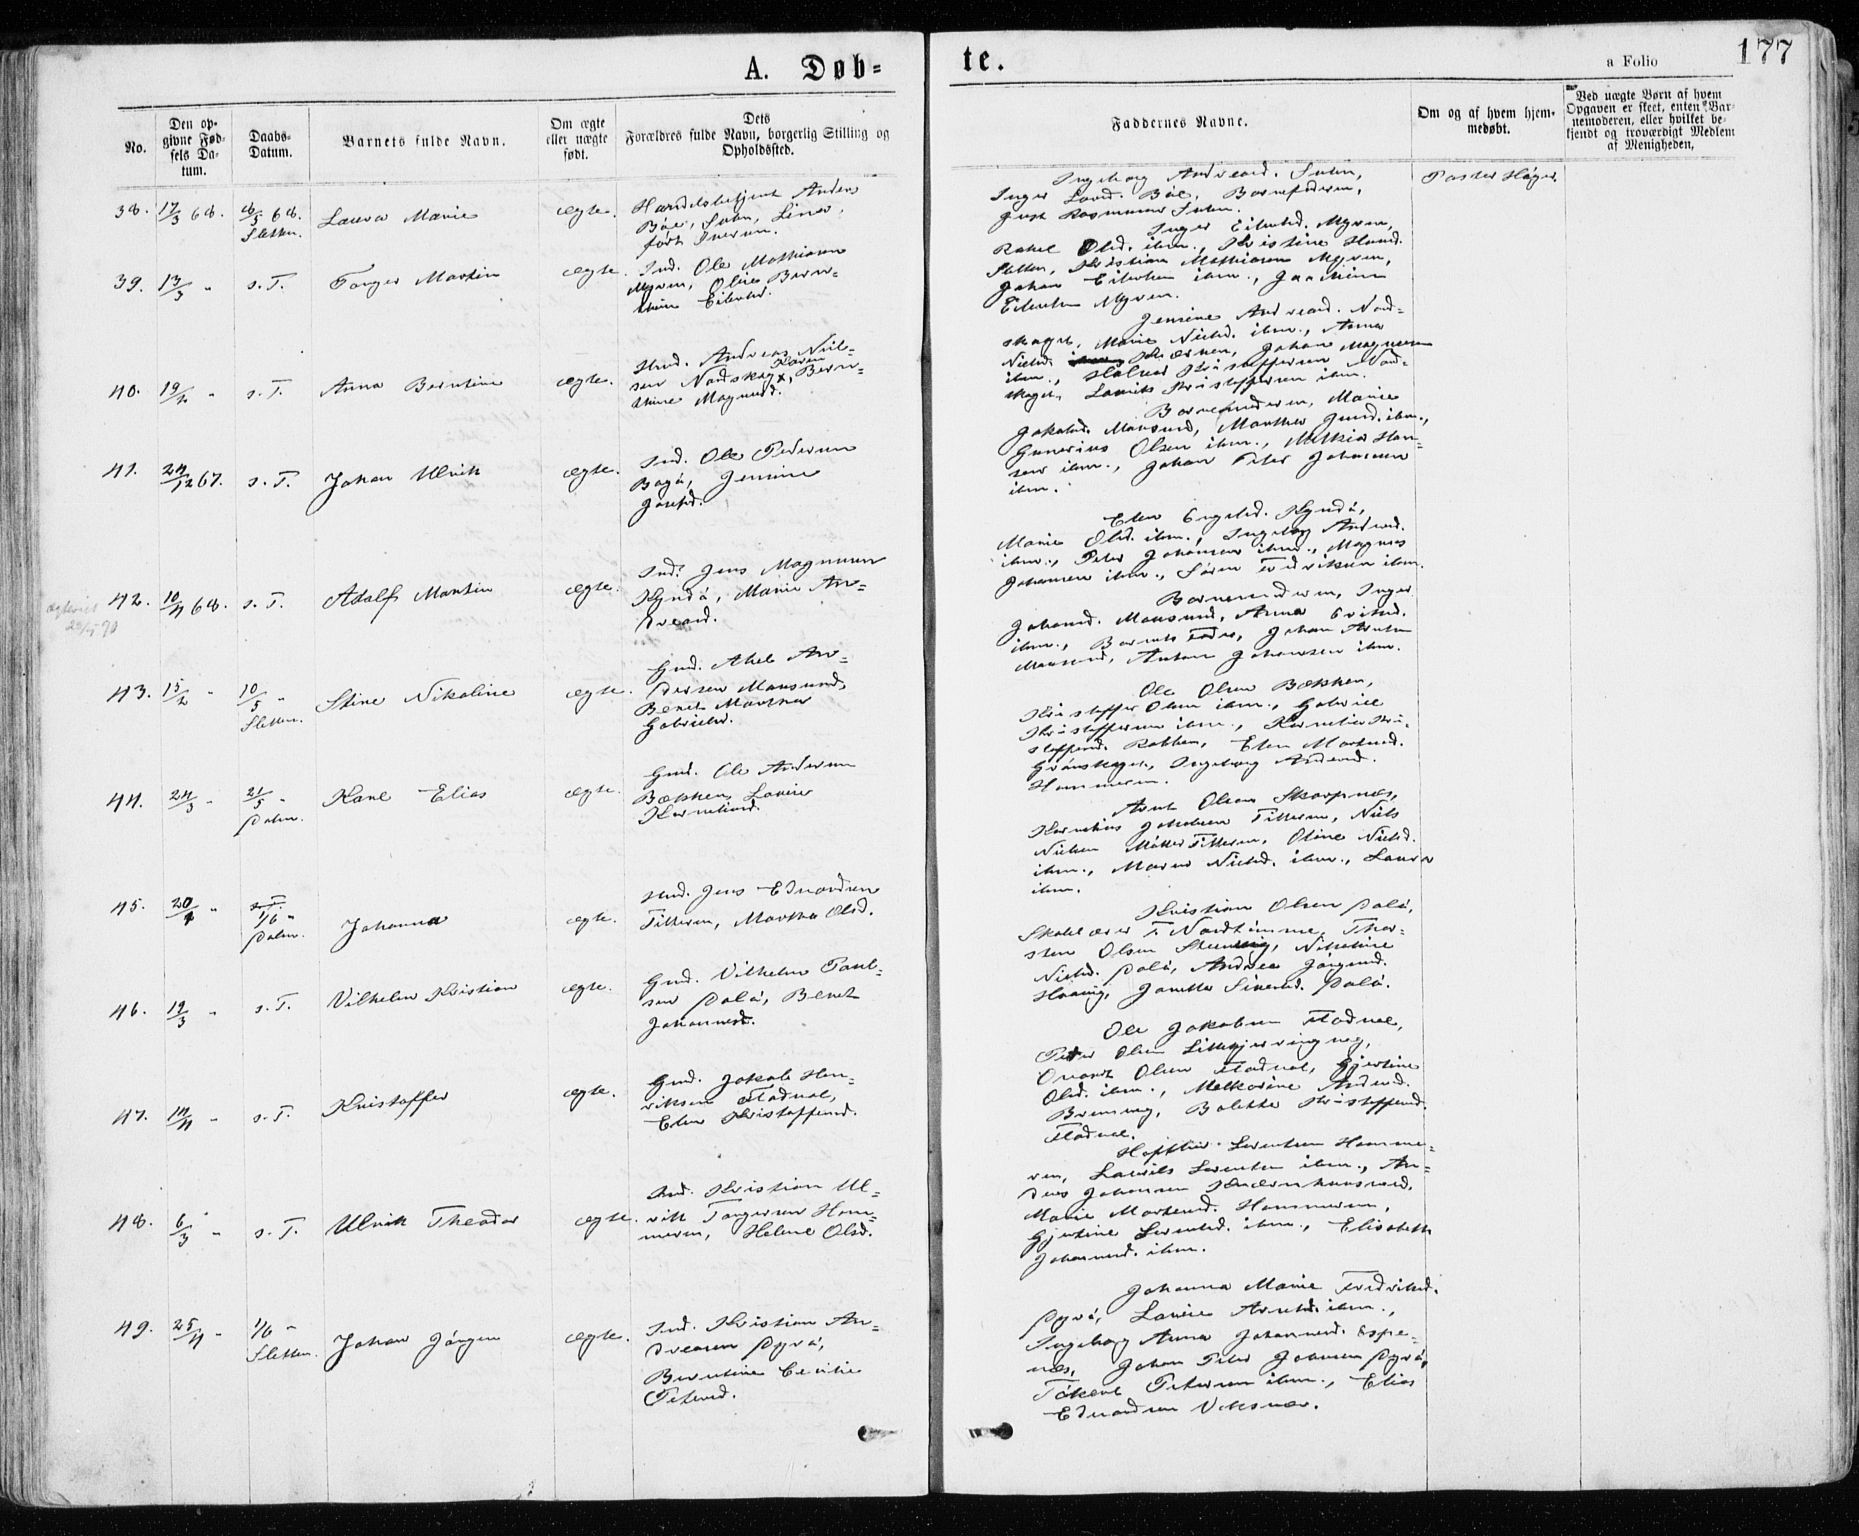 A. Døb=
te.
a Folio
177
No.
Den op-
givne Fød-
sels Da-
tum.
Daabs-
Datum.
Barnets fulde Navn.
Om ægte
eller uægte
født.
Dets
Forældres fulde Navn, borgerlig Stilling og
Opholdssted.
Faddernes Navne.
Om og af hvem hjem-
medøbt.
Ved uægte Børn af hvem
Opgaven er skeet, enten Bar-
nemoderen, eller hvilket be-
kjendt og troværdigt Medlem
af Menigheden.
38. 17/3 68. 8/5 68. Laura Marie ægte. Handelsbetjent Anders
Sletten. Bøe,
Ingeborg Andreasd.
Inger Lovisd. Bøe, Barnefaderen,
Just Rasmussen
Pastor Höyer.
39. 13/3 " s. T. Torger Martin ægte. Ind. Ole Mathiasen
Myren, Oline Bern-
thine Eilertsd.
Inger Eilertsd. Myren,
Rakel Olsd. ibm., Kristine Hansd.
Sletten, Kristian Mathiasen Myren,
Johan Eilertsen ibm., Joachim
Eilertsen Myren.
40. 19/2 " s. T. Anna Berntine ægte. Hmd. Andreas Niel-
sen Nordskag x, Bern- Karen
thine Magnusd.
Jensine Andreasd. Nord-
skaget, Marie Nielsd. ibm., Anna
Nielsd. Kværnen, Johan Magnussen
ibm., Halvor Kristoffersen Nord-
skaget, Laurits Kristoffersen ibm.
41. 24/12 67. s. T. Johan Ulrik ægte. Ind. Ole Pedersen
Bogö, Jensine
Josefsd.
Barnefaderen, Marie
Jakobsd. Mausund, Marthe Jensd. ibm.,
Gunerius Olsen ibm., Mathias Han-
sen ibm., Johan Peter Johansen
ibm.
42. 10/4 68. s. T. Adolf Martin ægte. Ind. Jens Magnussen
Kyndö, Marie An-
dreasd.
Elen Engelsd. Kyndö,
Marie Olsd. ibm., Ingeborg Andersd.
ibm., Peter Johansen ibm., Magnus
Johansen ibm., Sören Fredriksen ibm.
43. 15/2 " 10/5 " Stine Nikoline ægte. Gmd. Aksel An-
Sletten. dersen Mausund,
Beret Martha
Gabrielsd.
Barnemoderen, Inger
Johansd. Mausund, Anna
ibm., Barnets Fader, Johan Arntsen
Mausund, Anton Johansen ibm.
44. 24/3 " 21/5 " Karl Elias ægte. Gmd. Ole Andersen
Dolm. Bækken, Lovise
Korneliusd.
Ole Olsen Bækken,
Kristoffer Olsen ibm., Gabriel
Kristoffersen ibm., Kornelia Kri-
stoffersd. Bakken, Elen Martinsd.
Grönskaget, Ingeborg Andersd.
Hammeren.
45. 20/4 " s. T.
1/6 " Johanna ægte. Hmd. Jens Edvardsen
Dolm. Titteren, Martha Olsd.
Arnt Olsen Skarpnæs,
Kornelius Jakobsen Titteren, Niels
Nielsen Titteren, Oline Nielsd.
ibm., Maren Nielsd. ibm., Laura
ibm.
46. 19/3 " s. T. Vilhelm Kristian ægte. Gmd. Vilhelm Paul-
sen Dolö, Beret
Johannesd.
Kristian Olsen Dolö,
Skolelærer T. Nordhimme, Thor-
sten Olsen Nikoline
Nielsd. Dolö, Andrea Jörgensd.
Havnig, Janetta Siversd. Dolö.
47. 14/4 " s. T. Kristoffer ægte. Gmd. Jakob Hen-
riksen Fladval,
Elen Kristoffersd.
Ole Jakobsen Fladval,
Peter Olsen
Edvard Olsen Fladval, Gjertine
Olsd. ibm., Melkorine Andersd.
Bremnes, Bolette Kristoffersd.
Fladval.
48. 6/3 " s. T. Ulrik Theodor ægte. Ind. Kristian Ul-
rik Torgersen Ham-
meren, Helene Olsd.
Lorentsen Hamme-
ren, Laurits Lorentsen ibm., An-
ders Johansen
Marie Martinsd. Hammeren,
Gjertine Lorentsd. ibm., Elisabeth
Johannesd. ibm.
49. 25/4 " 1/6 " Johan Jörgen ægte. Ind. Kristian An-
Sletten. dreasen Dyrö,
Berntine Cecilie
Petersd.
Johanna Marie Fredriksd.
Dyrö, Lovise Arntsd. ibm.,
Ingeborg Anna Johannesd. Espe-
næs, Johan Peter Johansen Dyrö,
Petersen ibm., Elias
Edvardsen